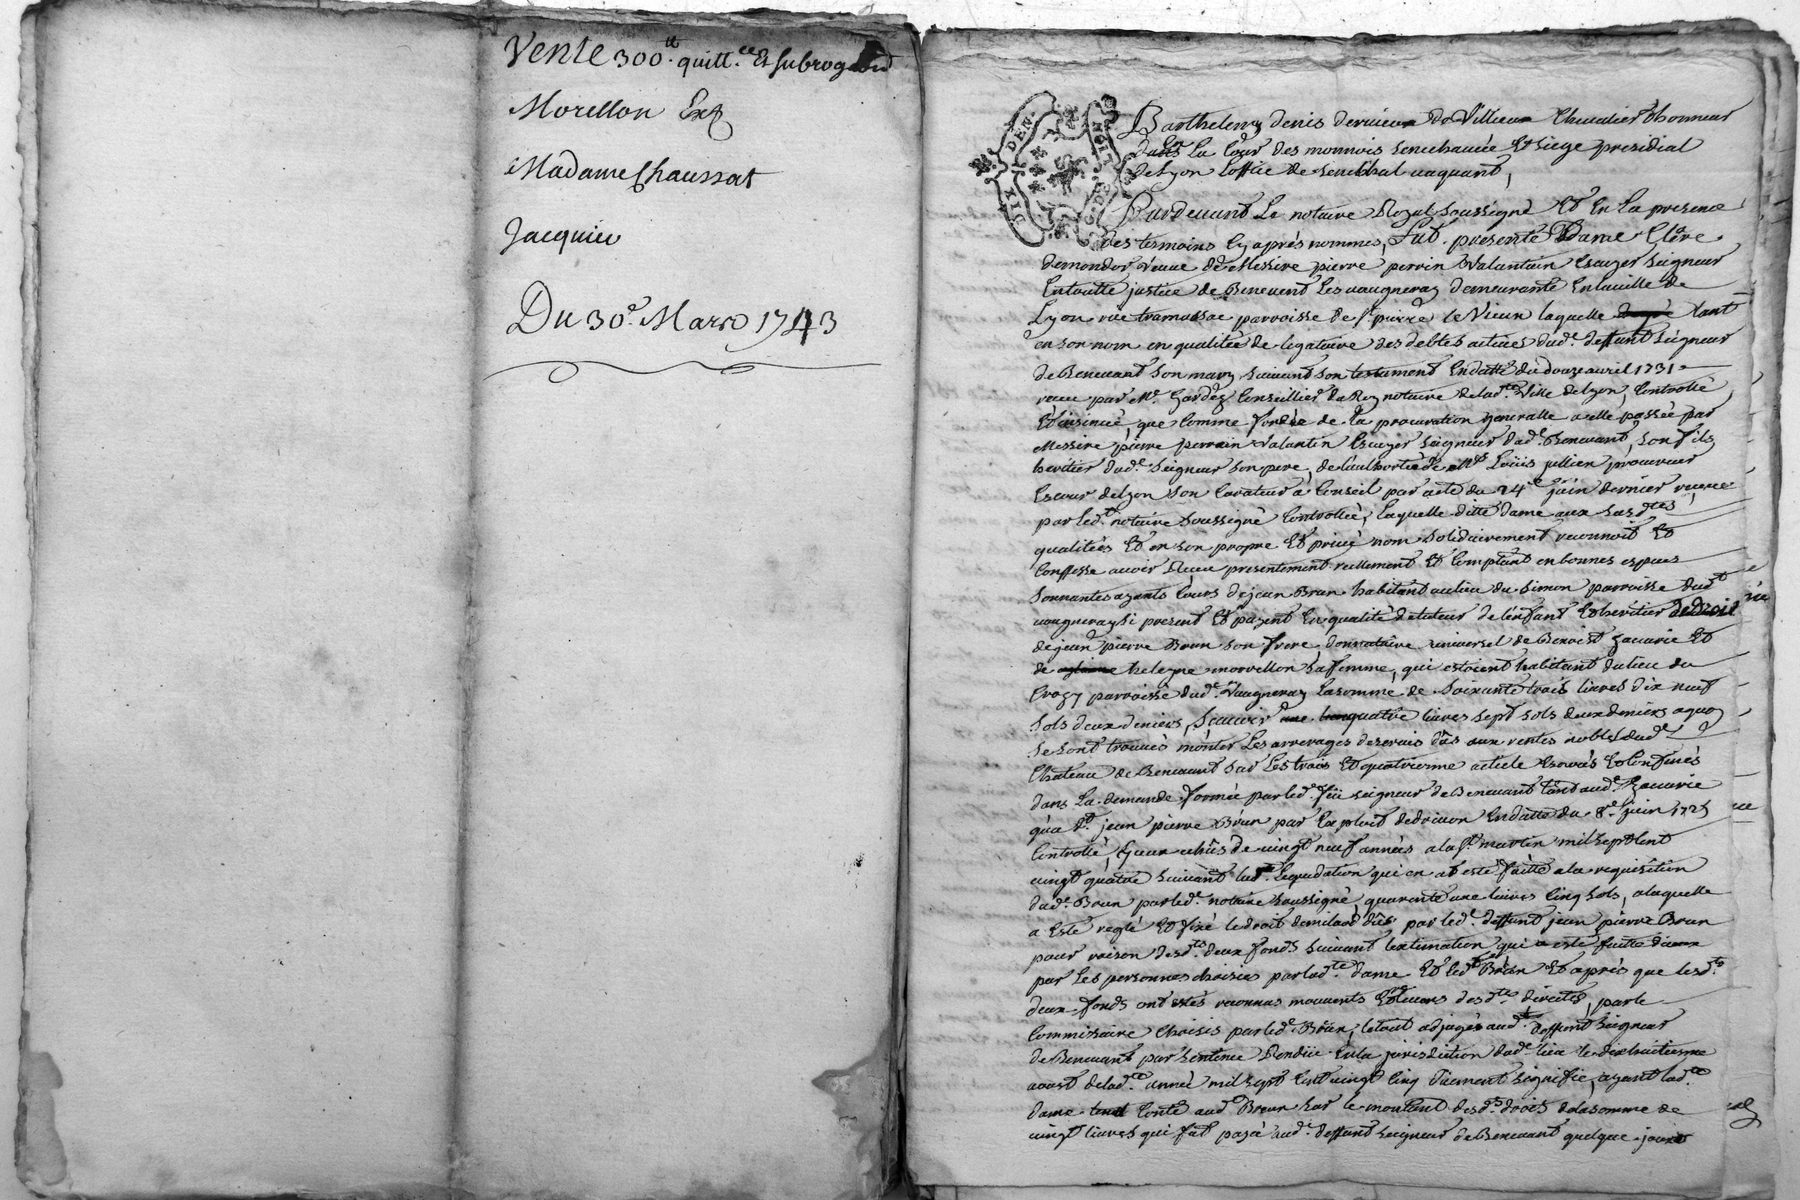 Vente 300tt. quitt.ce Et subrog
Morellon Exp
Madame Chaussat
Jacquier
Du 30e. Mars 1743
DIX DEN.
NOIT. D. G.
Barthelemy denis dervieux de Villieux Chevalier d'honneur
dans La Cour des monnois senechaucée Et siege presidial
de Lyon Loffice de senechal vaquant,
Pardevant Le notaire Royal soussigné Et En La presence
des temoins Cy aprés nommes, fut presente Dame Clere
demondor veuve de Messire pierre perrin Valantain Escuyer seigneur
Entoutte justice de Benevent Les vaugneray demeurante En laville de
Lyon rüe tramassac parroisse de st. pierre le Vieux laquelle tant
en son nom en qualitée de legataire des debtes actives dud. deffunt seigneur
de Benevant son mary suivant son testament En datte du douze avril 1731
receu par Me. Gardez Conseillier du Roy notaire de lad.te Ville de Lyon, Controllé
Et insinué, que Comme fondée de La procuration generalle a elle passée par
Messire pierre perrein Valantin Escuyer seigneur dud. Benevant, son fils
heritier dud. seigneur son pere, de l'authorité de Me. Loüis jullien procureur
Escour de Lyon son Curateur à Conseil par acte du 24e juin dernier receu
par led.t notaire soussigné Controllée, laquelle ditte dame aux susd.tes
qualitées Et en son propre Et privé nom solidairement reconnoit Et
Confesse avoir Receu presentement reellement Et Comptant en bonnes especes
sonnantes ayants Cours de jean Brun habitant au lieu du simon parroisse dud.t
vaugneray si present Et payent En qualité de tuteur de l'enfant Et heritier de droit
de jean pierre Brun son frere donnataire universel de Benoist Zacarie Et
de heleyne morvellon sa femme, qui estoient habitant du lieu du
Crozy parroisse dud. Vaugneray La somme de Soixante trois livres dix neuf
sols deux deniers, scavoir quatre livres sept sols deux deniers a quoy
se sont trouvés monter Les arrerages deservis dûs aux rentes nobles dud.
Chateau de Benevant sur Les trois Et quatrieme article Enoncés Et Confinés
dans La demande formée par led. feü seigneur de Benevant tant aud. Zacarie
qu'a Jean pierre Brun par Exploit dedrivon En datte du 8e juin 1725
Controllé, Ceux echûs de vingt neuf années a la st martin mil sept Cent
vingt quatre suivant lad. liquidation qui en at esté faitte a la requisition
dud. Brun par led. notaire soussigné, quarante une livres Cinq sols, a laquelle
a Esté reglé Et fixé le droit de milod dûs par led. deffunt jean pierre Brun
pour raison desd.ts deux fonds suivant lestimation qui a esté faitte d'iceux
par Les personnes choisies par lad.te dame Et led.t Brun Et aprés que lesd.ts
deux fonds ont estés reconnus mouvants desd.tes directes, par le
Commissaire Choisis par led. Brun, letout adjugés aud.t deffunt seigneur
de Benevant par sentence Rendüe En la jurisdiction dud. lieu le dix huitieme
aoust de lad.te année mil sept Cent vingt Cinq Düement signifié, ayant lad.te
dame tenit Conte aud. Brun sur le montant desd.ts droits de la somme de
vingt livres qui fut payé aud. deffunt seigneur de Benevant quelque jours